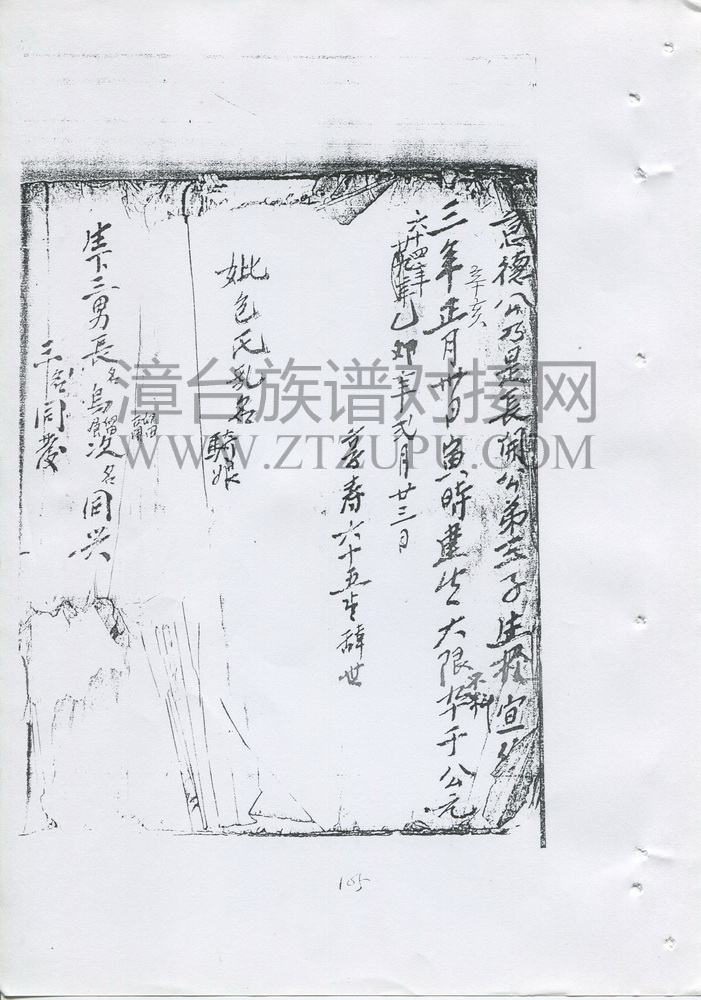 意德公乃是長開公弟三子生於宣統
三年正月廿日寅時建生大限不料卒于公元
辛亥
六十四年乙卯年弍月廿三日
享寿六十五岁辞世
妣包氏乳名
騎娘
生下三男長名烏 次名同兴
三名同發
漳台族谱对接网
WWW.ZTZUPU.COM
105